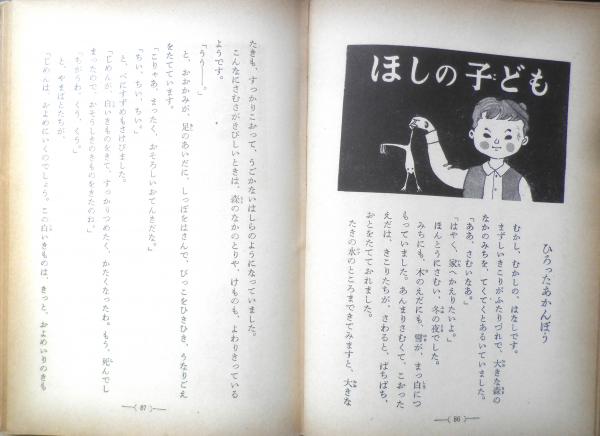 ほしの子ども
ひろったあかんぼう
むかし、むかしの、はなしです。
まずしいきこりがふたりづれで、大きな森の
なかのみちを、てくてくとあるいていました。
「ああ、さむいなあ。」
「はやく、家へかえりたいよ。」
ほんとうにさむい、冬の夜でした。
みちにも、木のえだにも、雪が、まっ白につ
もっていました。あんまりさむくて、こおった
えだは、きこりたちが、さわると、ぱちぱち、
おとをたてておれました。
たきの水のところまできてみますと、大きな
86
たきも、すっかりこおって、うごかないはしらのようになっていました。
こんなにさむさがきびしいときは、森のなかのとりや、けものも、よわりきっている
ようです。
「うう――。」
と、おおかみが、足のあいだに、しっぽをはさんで、びっこをひきひき、うなりごえ
をたてています。
「こりゃあ、まったく、おそろしいおてんきだな。」
「ちい、ちい、ちい。」
と、べにすずめもさけびました。
「じめんが、白いきものをきて、すっかりつめたく、かたくなったわ。もう、死んでし
まったので、おそうしきのきものをきたのね。」
「ちがうわ、くう、くう。」
と、やまばとたちが、
「じめんは、およめにいくのでしょう。この白いきものは、きっと、およめいりのきも
87